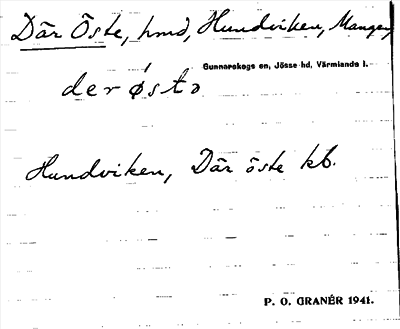 Där Öste, hmd, Hundviken, Mangen,
Gunnarskogs sn, Jösse hd, Värmlands l.
der østə
Hundviken, Där öste kb.
P. O. GRANÉR 1941.